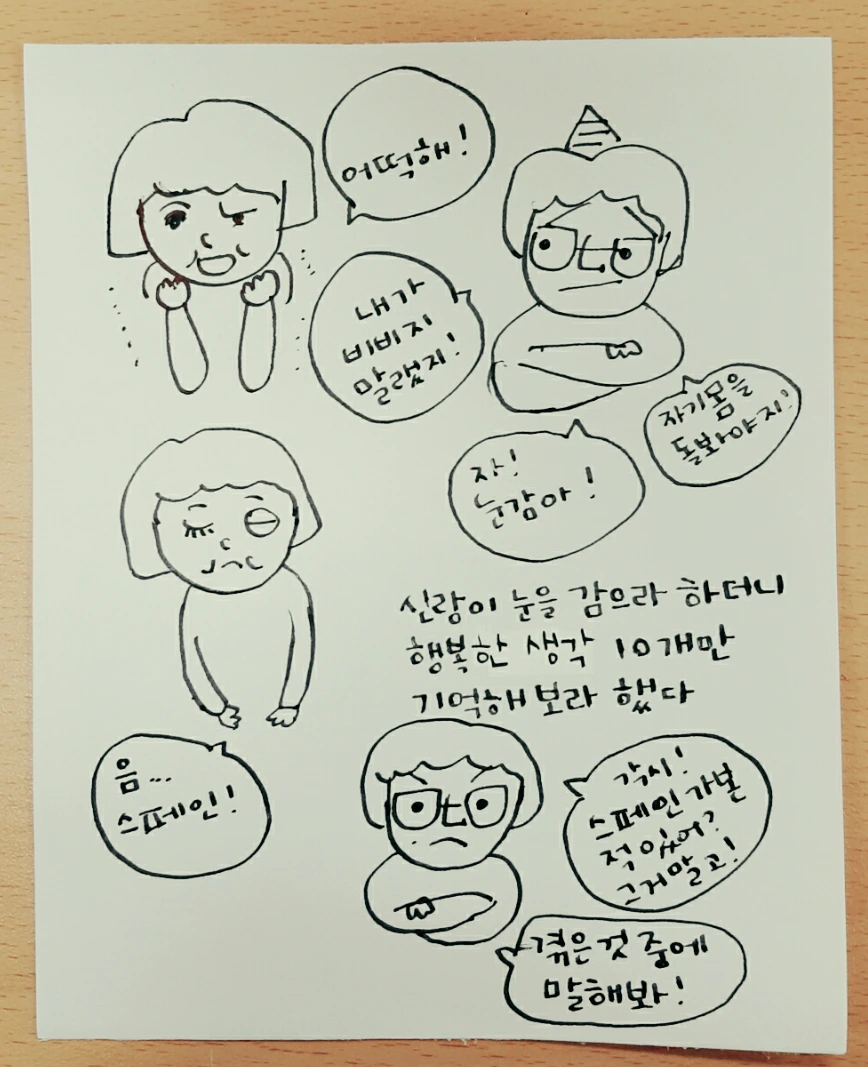 어떡해!
내가
비비지
말랬지!
자기몸을
돌봐야지!
자!
눈감아!
신랑이 눈을 감으라 하더니
행복한 생각 10개만
기억해보라 했다
음...
스페인!
각시!
스페인가본
적 있어?
그거말고!
겪은것 중에
말해봐!